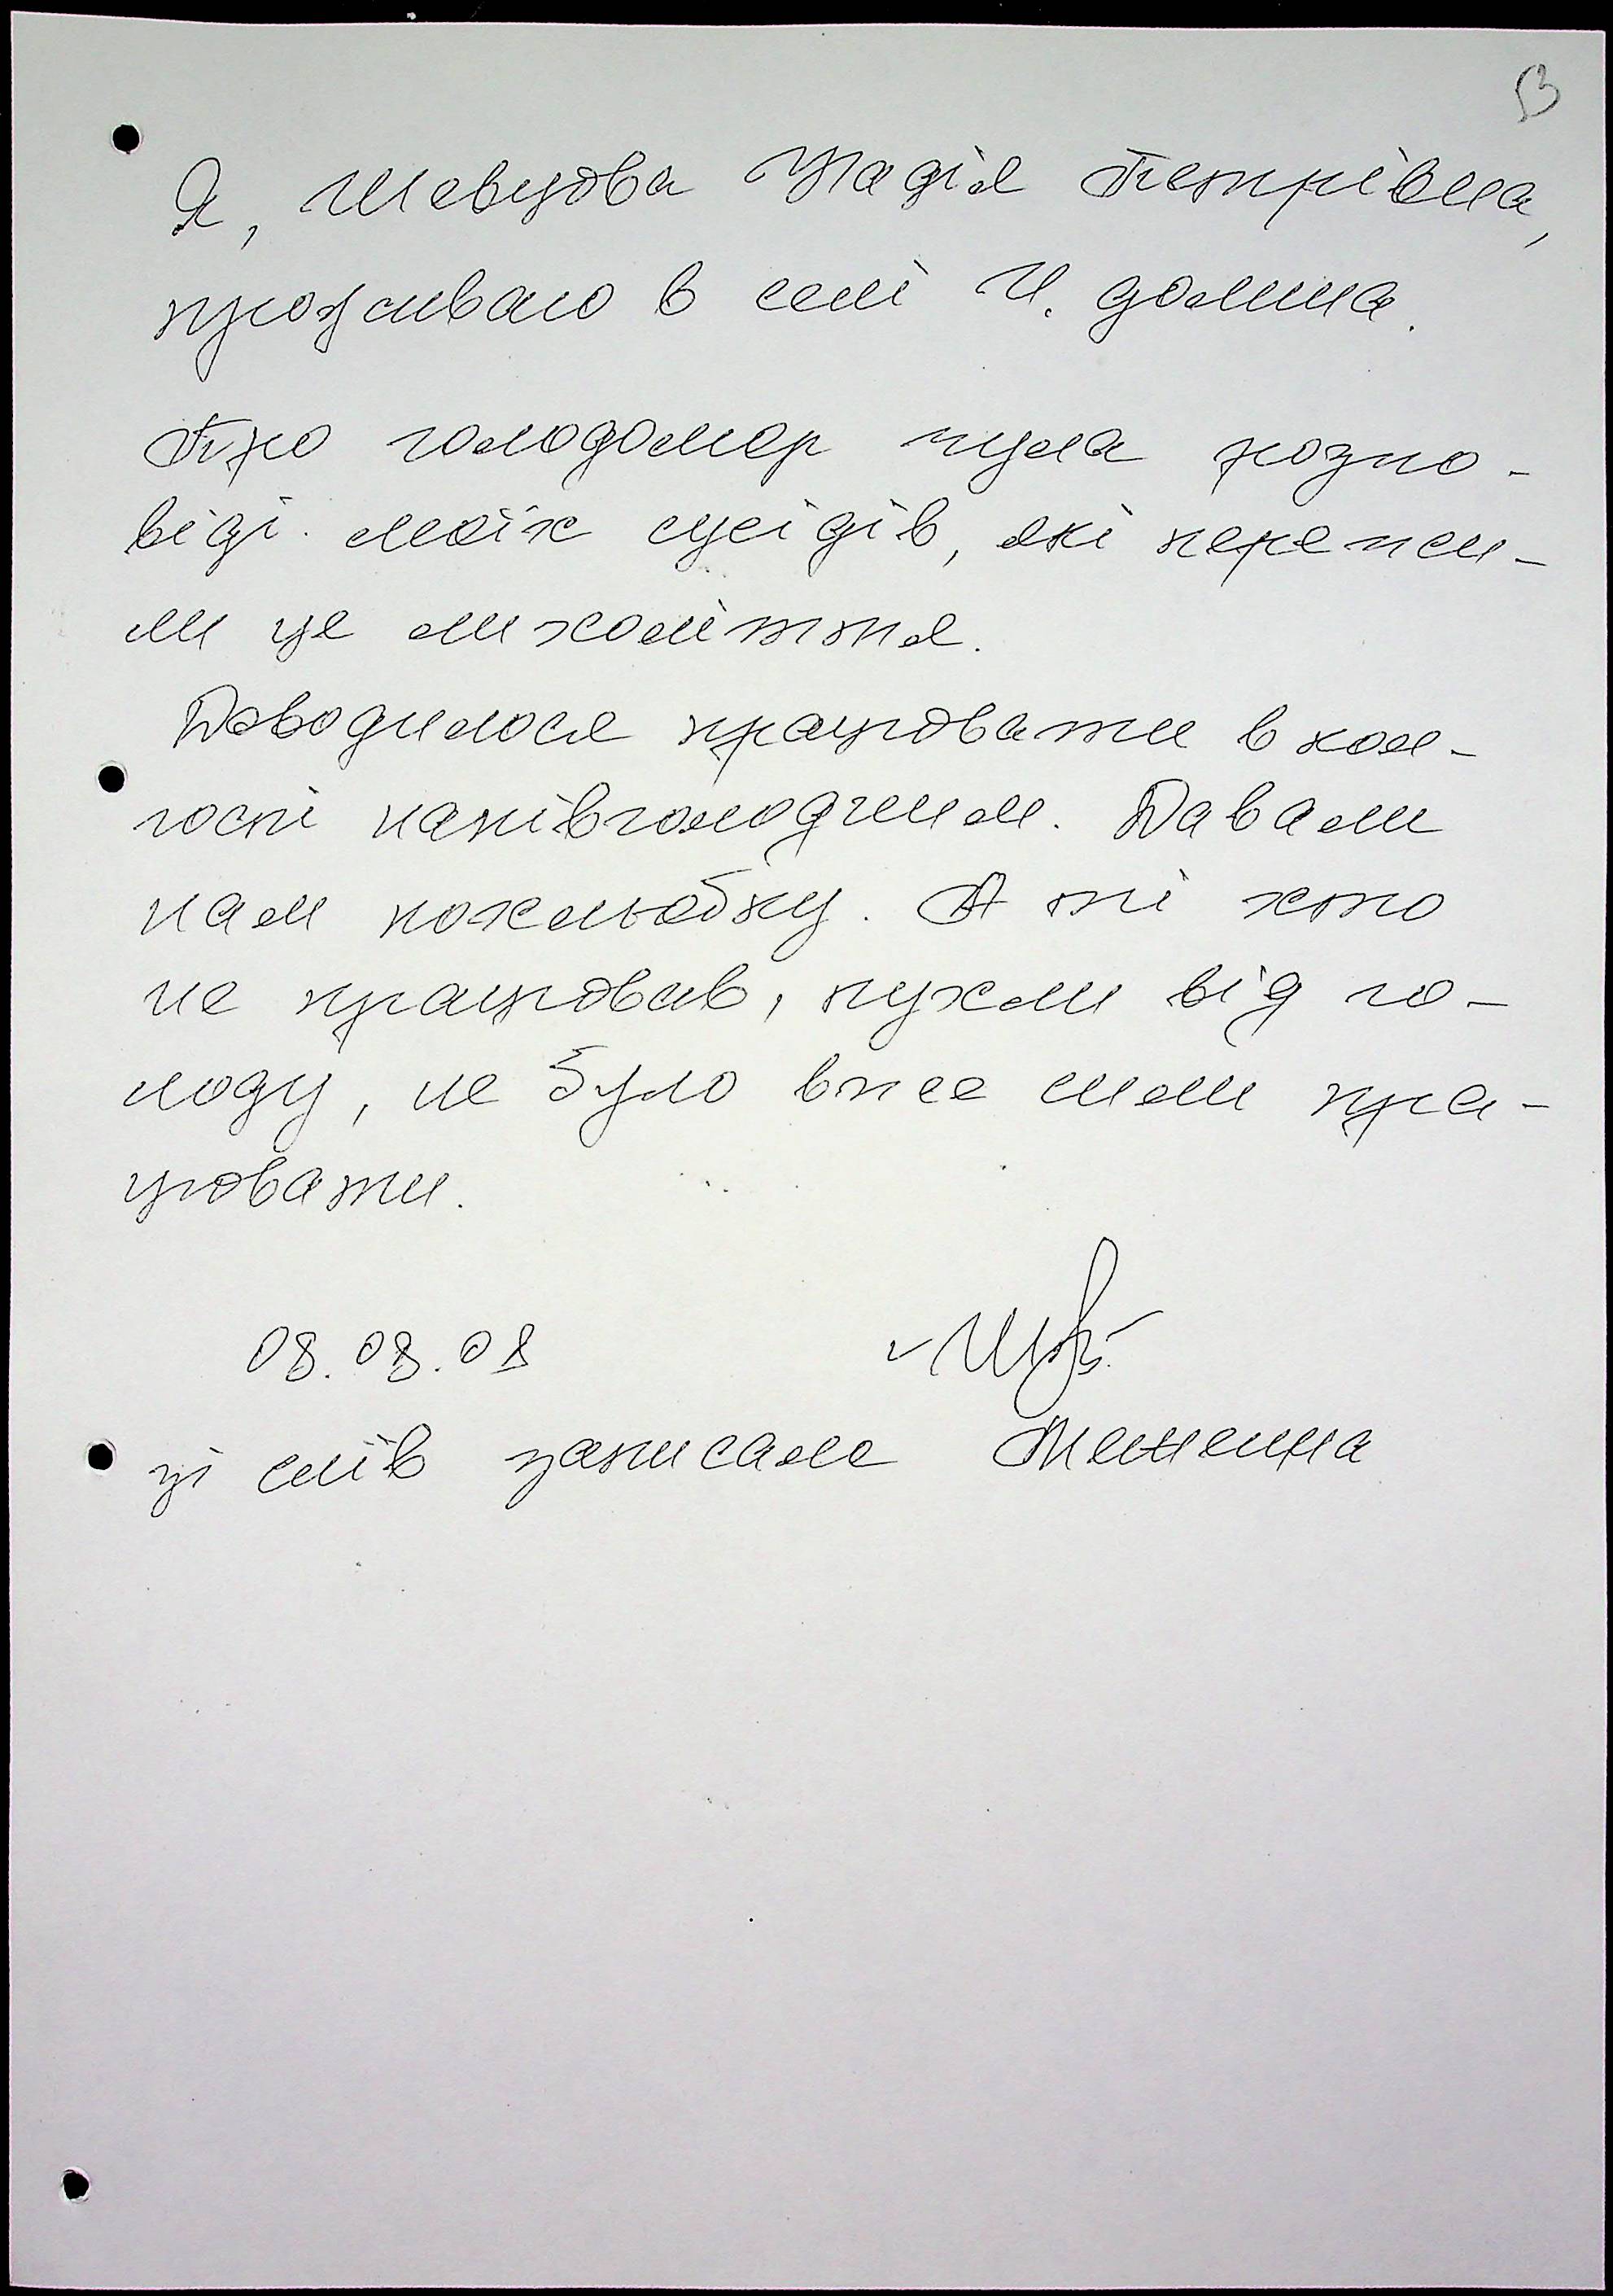 13
Я, Шевцова Надія Петрівна,
проживаю в селі Ч. долина.
Про голодомор чула розпо-
віді моїх сусідів, які пережи-
ли це лихоліття.
Доводилося працювати в кол-
госпі напівголодним. Давали
нам похльобку. А ті хто
не працював, пухли від го-
лоду, не було вже сили пра-
цювати.
08.08.08
зі слів записала